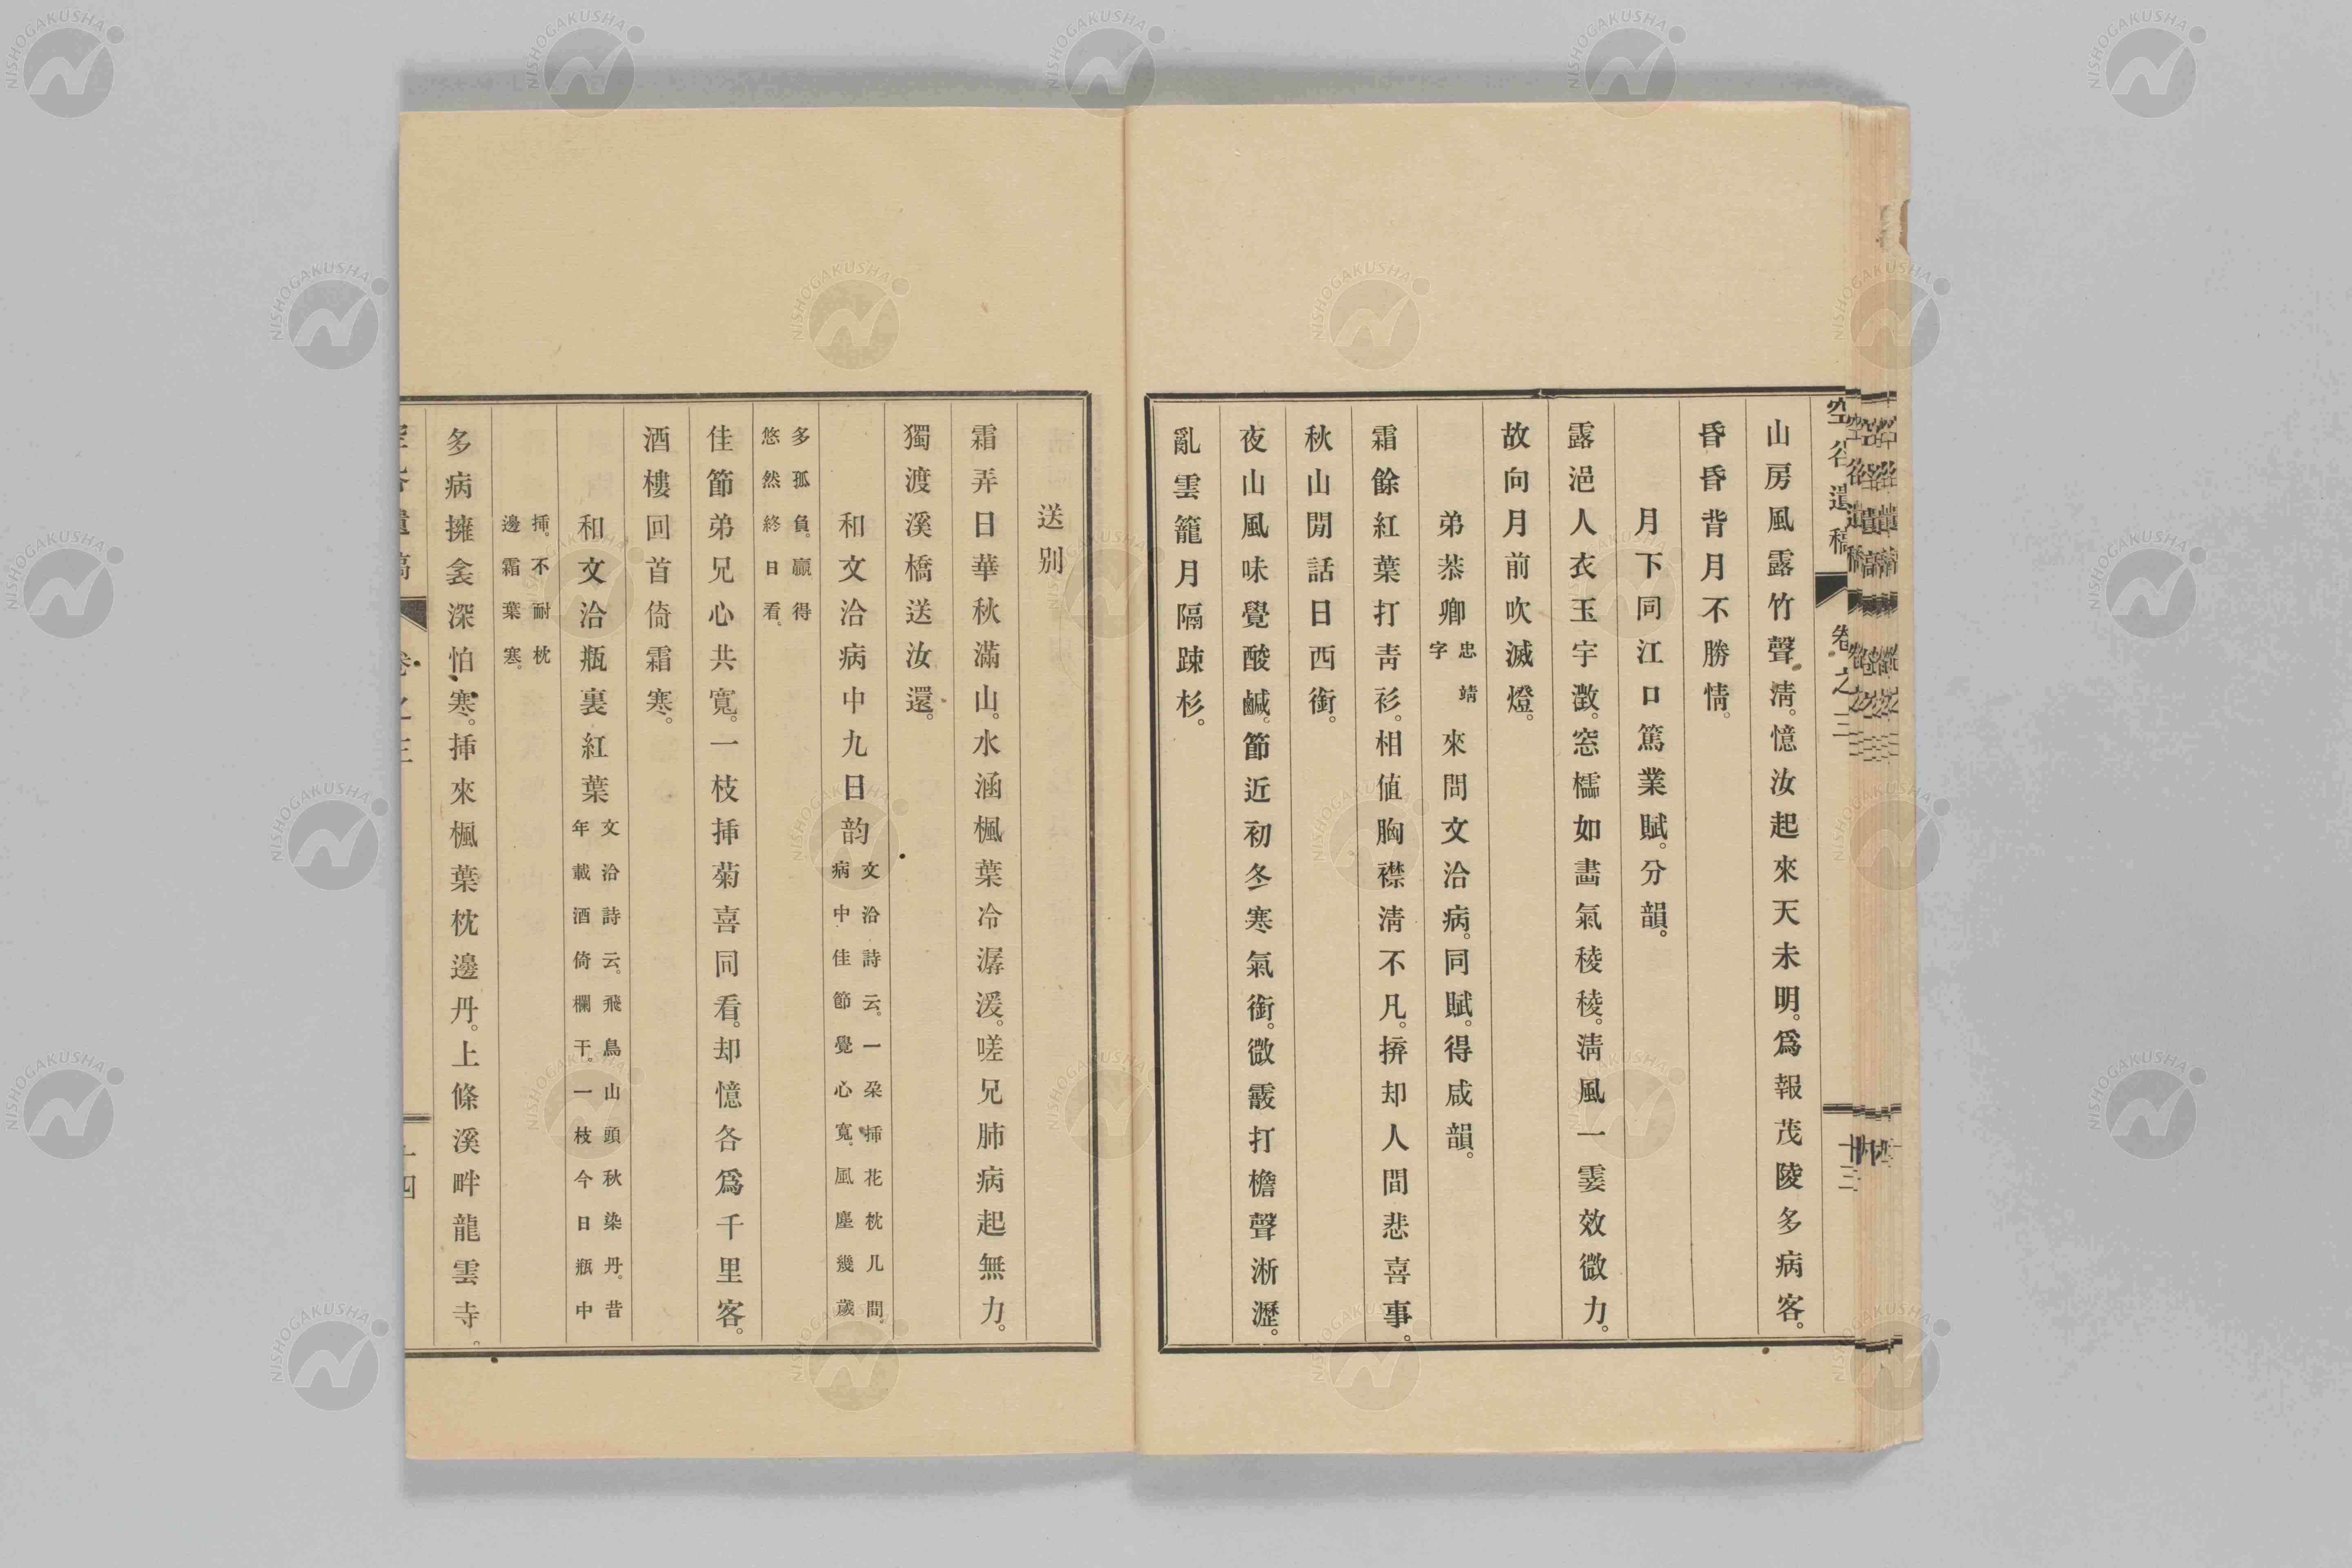 空谷遺稿 卷之三 十三
山房風露竹聲淸。憶汝起來天未明。爲報茂陵多病客。
昏昏背月不勝情。
月下同江口篤業賦。分韻。
露浥人衣玉宇澂。窓櫺如畫氣稜稜。淸風一霎效微力。
故向月前吹滅燈。
弟恭卿忠靖字來問文洽病。同賦。得咸韻。
霜餘紅葉打靑衫。相値胸襟淸不凡。拚却人間悲喜事。
秋山閒話日西銜。
夜山風味覺酸鹹。節近初冬寒氣銜。微霰打檐聲淅瀝。
亂雲籠月隔踈杉。
送別
霜弄日華秋滿山。水涵楓葉冷潺湲。嗟兄肺病起無力。
獨渡溪橋送汝還。
和文洽病中九日韵文洽詩云。一朶挿花枕几間。病中佳節覺心寬。風塵幾歲
多孤負。贏得悠然終日看。
佳節弟兄心共寬。一枝挿菊喜同看。却憶各爲千里客。
酒樓回首倚霜寒。
和文洽瓶裏紅葉文洽詩云。飛鳥山頭秋染丹。昔年載酒倚欄干。一枝今日瓶中
挿。不耐枕邊霜葉寒。
多病擁衾深怕寒。挿來楓葉枕邊丹。上條溪畔龍雲寺。